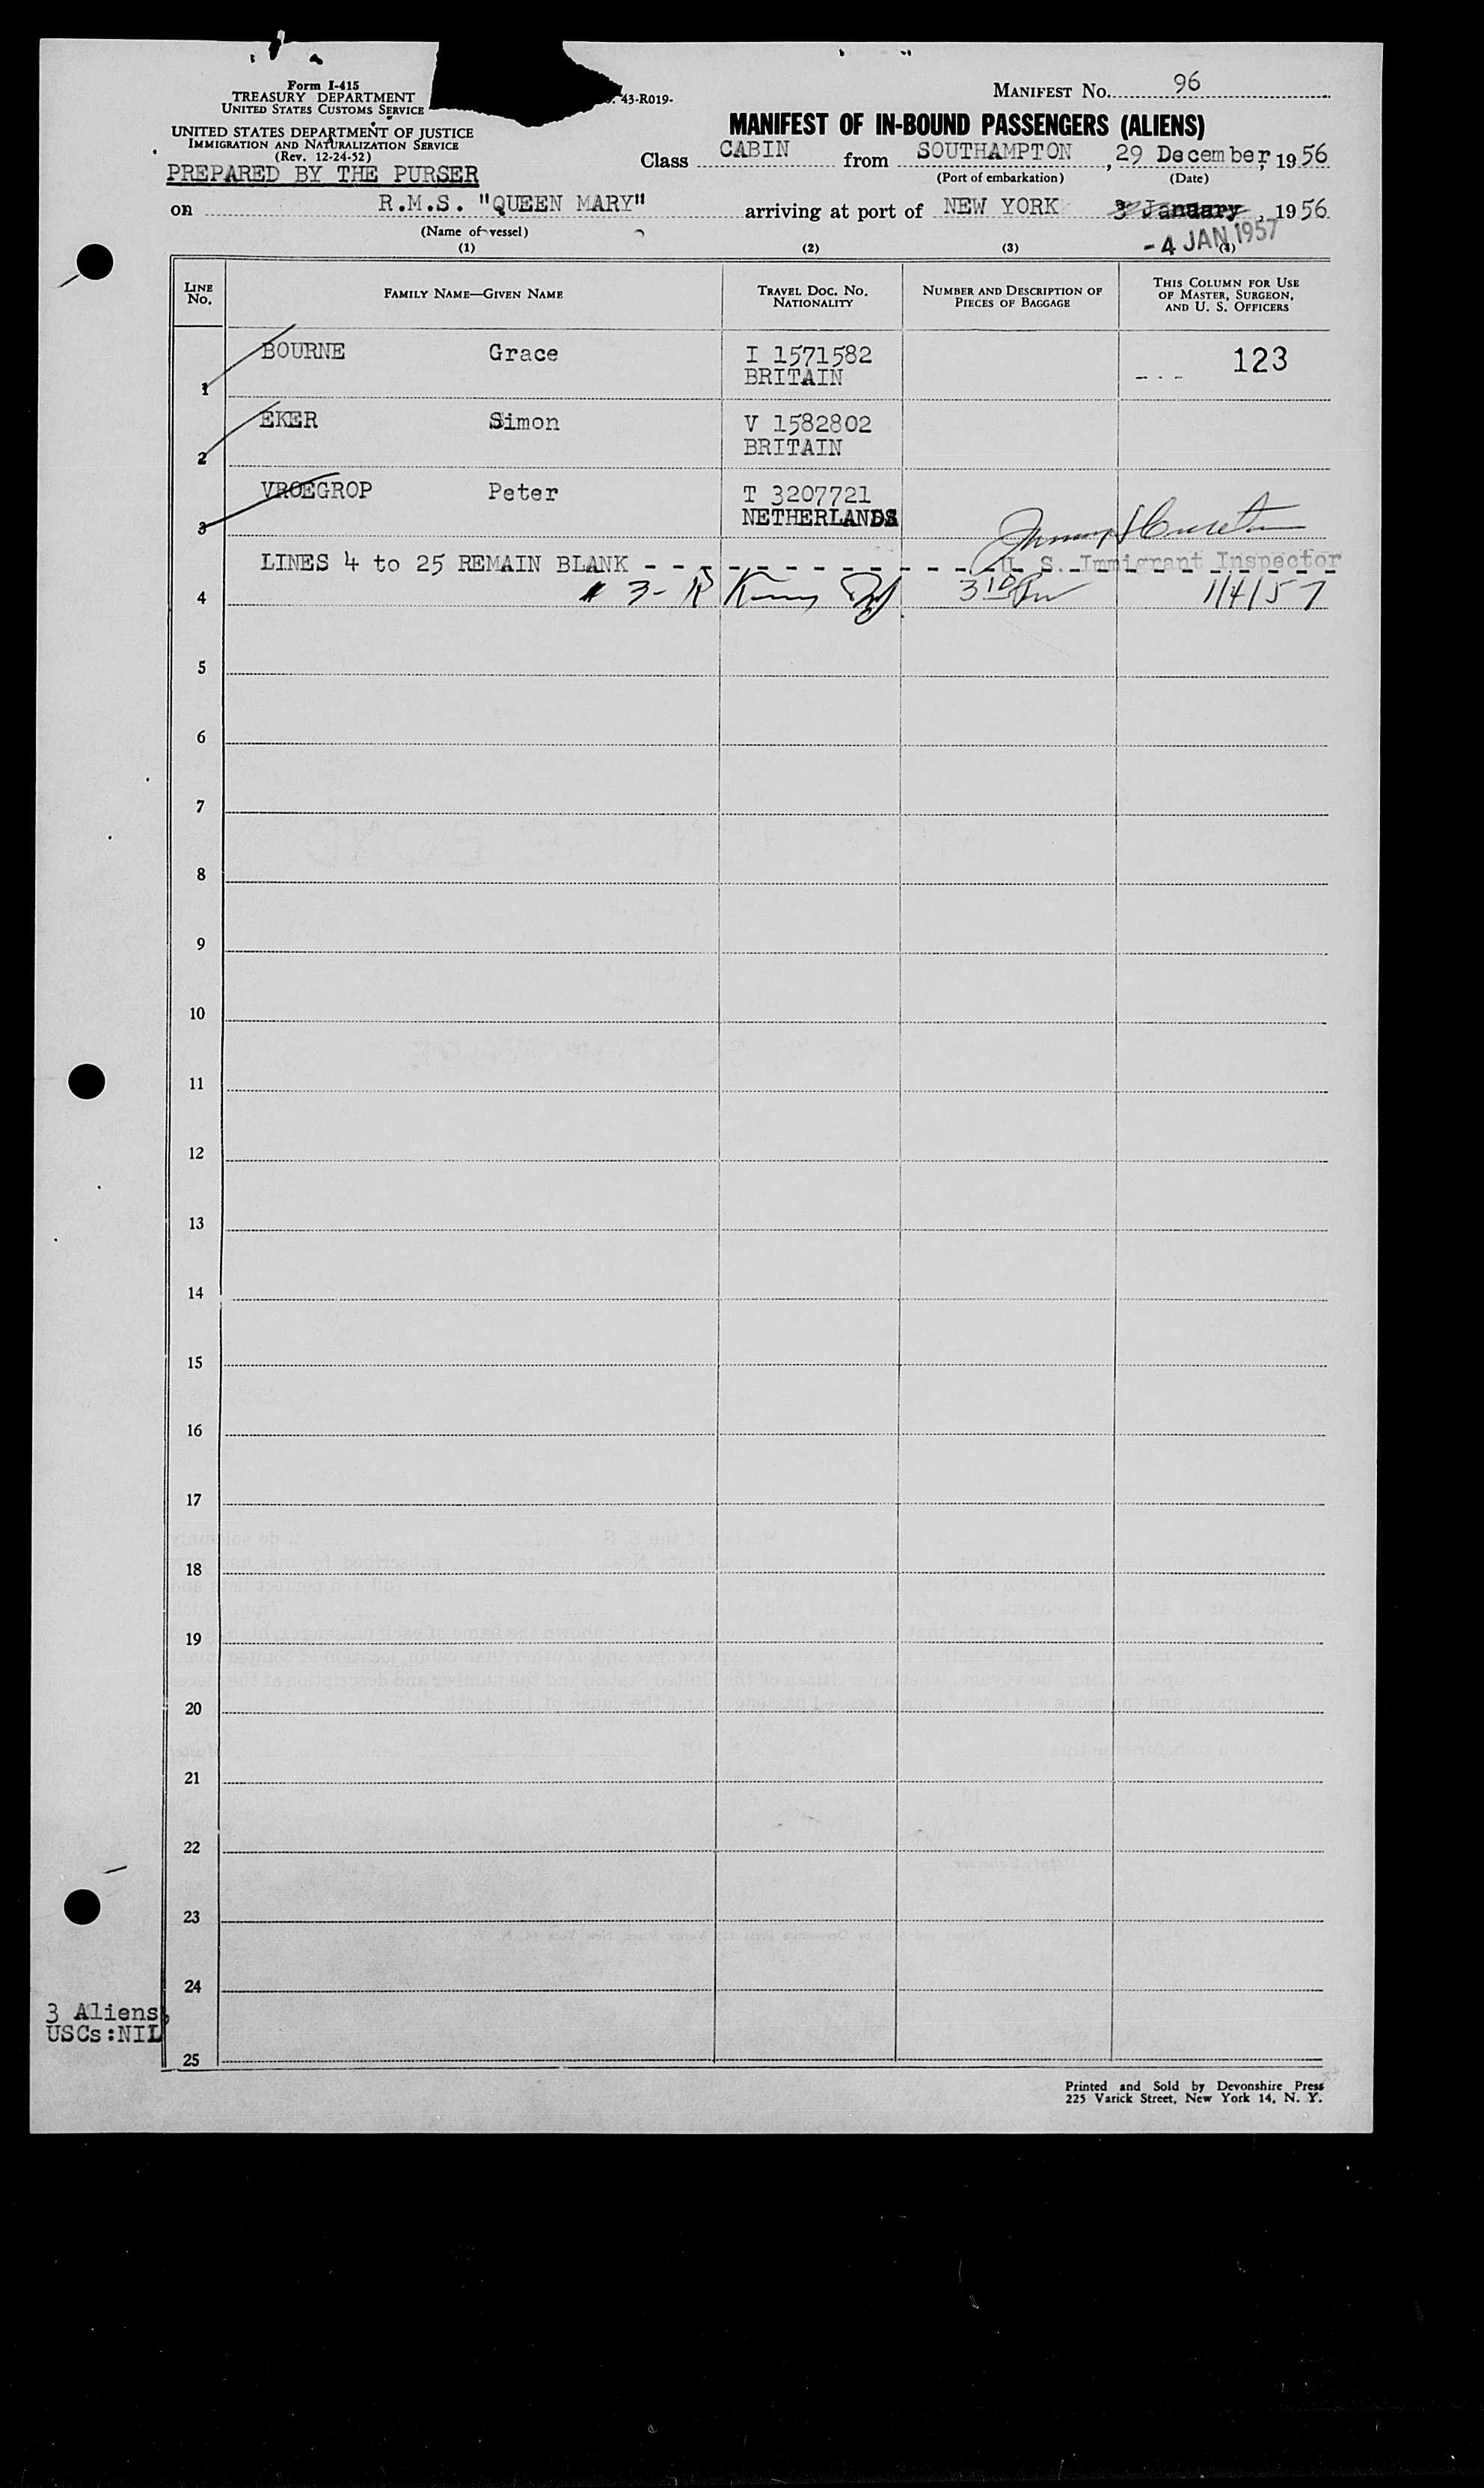 Form I-415
TREASURY DEPARTMENT
UNITED STATES CUSTOMS SERVICE
43-R019-
UNITED STATES DEPARTMENT OF JUSTICE
IMMIGRATION AND NATURALIZATION SERVICE
(Rev. 12-24-52)
PREPARED BY THE PURSER
MANIFEST NO. 96
MANIFEST OF IN-BOUND PASSENGERS (ALIENS)
Class CABIN from SOUTHAMPTON, 29 December, 1956
(Port of embarkation) (Date)
on R.M.S. "QUEEN MARY" arriving at port of NEW YORK 3 January, 1956
(Name of vessel)
- 4 JAN 1957
(1) (2) (3) (4)
LINE No. FAMILY NAME—GIVEN NAME TRAVEL DOC. NO. NATIONALITY NUMBER AND DESCRIPTION OF PIECES OF BAGGAGE THIS COLUMN FOR USE OF MASTER, SURGEON, AND U. S. OFFICERS
1 BOURNE Grace I 1571582 BRITAIN --- 123
2 EKER Simon V 1582802 BRITAIN
3 VROEGROP Peter T 3207721 NETHERLANDS
LINES 4 to 25 REMAIN BLANK - - - - - - - - - - - - -
U. S. Immigrant Inspector
4 3- 1/4/57
5
6
7
8
9
10
11
12
13
14
15
16
17
18
19
20
21
22
23
24
3 Aliens
USCs:NIL
25
Printed and Sold by Devonshire Press
225 Varick Street, New York 14, N. Y.